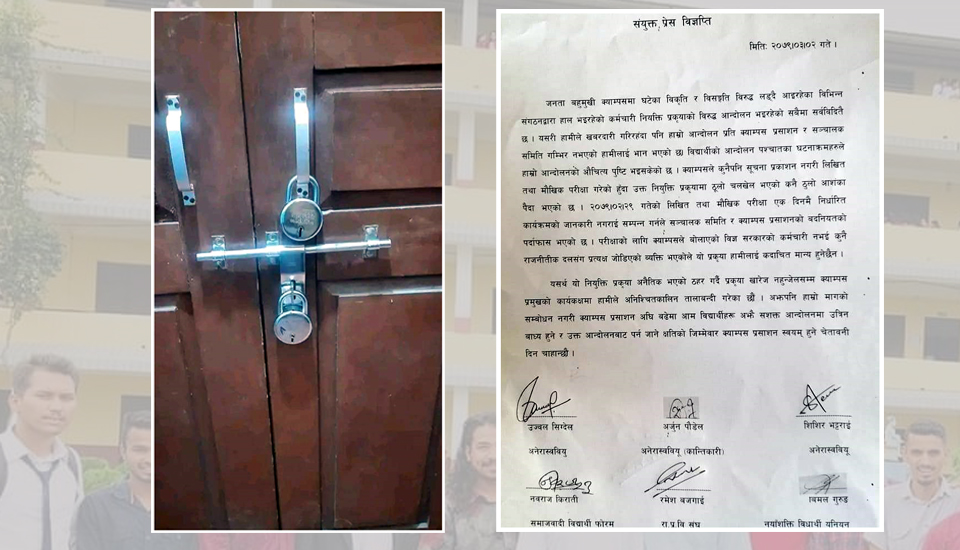 संयुक्त प्रेस विज्ञप्ति
मिति: २०७९।०३।०२ गते ।
जनता बहुमुखी क्याम्पसमा घटेका विकृति र विसङ्गति विरुद्ध लड्दै आइरहेका विभिन्न
संगठनद्वारा हाल भइरहेको कर्मचारी नियुक्ति प्रकृयाको विरुद्ध आन्दोलन भइरहेको सबैमा सर्वविदितै
छ । यसरी हामीले खबरदारी गरिरहँदा पनि हाम्रो आन्दोलन प्रति क्याम्पस प्रशासन र सञ्चालक
समिति गम्भिर नभएको हामीलाई भान भएको छ। विद्यार्थीको आन्दोलन पश्चातका घटनाक्रमहरुले
हाम्रो आन्दोलनको औचित्य पुष्टि भइसकेको छ । क्याम्पसले कुनैपनि सूचना प्रकाशन नगरी लिखित
तथा मौखिक परीक्षा गरेको हुँदा उक्त नियुक्ति प्रकृयामा ठूलो चलखेल भएको कनै ठुलो आशंका
पैदा भएको छ । २०७९।०२।२९ गतेको लिखित तथा मौखिक परीक्षा एक दिनमै निर्धारित
कार्यक्रमको जानकारी नगराई सम्पन्न गर्नले सञ्चालक समिति र क्याम्पस प्रशासनको बदनियतको
पर्दाफास भएको छ । परीक्षाको लागि क्याम्पसले बोलाएको विज्ञ सरकारको कर्मचारी नभई कुनै
राजनीतीक दलसंग प्रत्यक्ष जोडिएको ब्यक्ति भएकोले यो प्रकृया हामीलाई कदाचित मान्य हुनेछैन ।
यसर्थ यो नियुक्ति प्रकृया अनैतिक भएको ठहर गर्दै प्रकृया खारेज नहुन्जेलसम्म क्याम्पस
प्रमुखको कार्यकक्षमा हामीले अनिश्चितकालिन तालाबन्दी गरेका छौ । अझपनि हाम्रो मागको
सम्बोधन नगरी क्याम्पस प्रशासन अघि बढेमा आम विद्यार्थीहरू अझै सशक्त आन्दोलनमा उत्रिन
बाध्य हुने र उक्त आन्दोलनबाट पर्न जाने क्षतिको जिम्मेवार क्याम्पस प्रशासन स्वयम् हुने चेतावनी
दिन चाहान्छौ ।
उज्वल सिग्देल अर्जुन पौडेल शिशिर भट्टराई
अनेरास्ववियु अनेरास्ववियु (क्रान्तिकारी) अनेरास्ववियु
नवराज किराती रमेश बजगाई बिमल गुरुङ
समाजवादी विद्यार्थी फोरम रा.प्र.वि संघ नयाँशक्ति विधार्थी युनियन